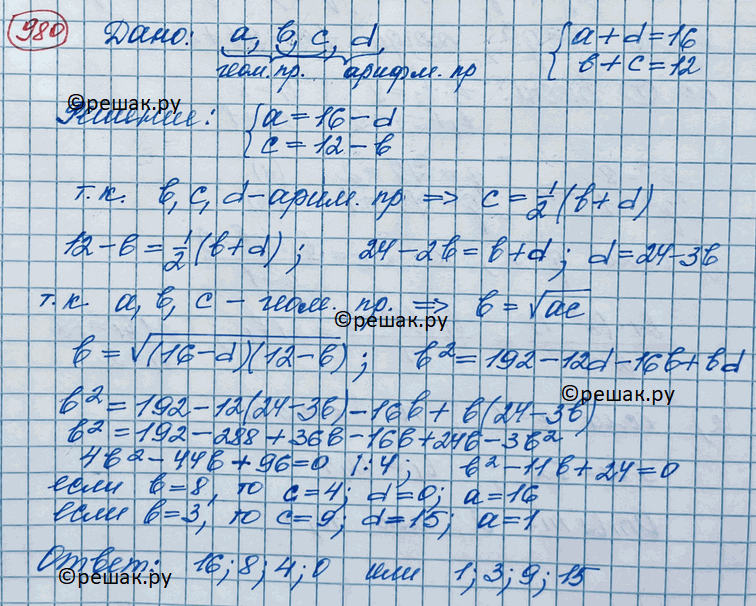 980 Дано: a, b, c, d, { a + d = 16
геом. пр. арифм. пр { b + c = 12
©решак.ру
Решение: { a = 16 - d
{ c = 12 - b
т.к. b, c, d - арим. пр => c = 1/2 (b + d)
12 - b = 1/2 (b + d) ; 24 - 2b = b + d ; d = 24 - 3b
т.к a, b, c - геом. пр. => b = √ac
©решак.ру
b = √(16-d)(12-b) ; b² = 192 - 12d - 16b + bd
©решак.ру
b² = 192 - 12(24 - 3b) - 16b + b(24 - 3b)
b² = 192 - 288 + 36b - 16b + 24b - 3b²
4b² - 44b + 96 = 0 |:4 ; b² - 11b + 24 = 0
если b = 8, то c = 4; d = 0; a = 16
если b = 3, то c = 9; d = 15; a = 1
Ответ: 16; 8; 4; 0 или 1; 3; 9; 15
©решак.ру